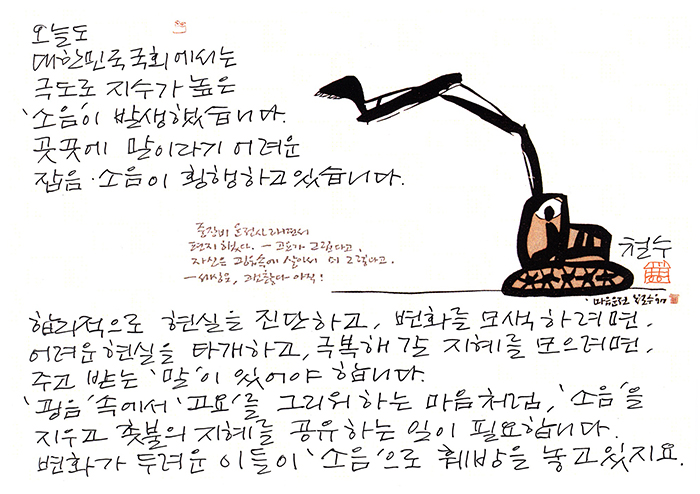 오늘도
대한민국 국회에서는
극도로 지수가 높은
'소음'이 발생했습니다.
곳곳에 말이라기 어려운
잡음·소음이 횡행하고 있습니다.
중장비 운전사라면서
편지 하셨다. — 고요가 그립다고,
자신은 굉음속에 살아서 더 그렇다고.
— 세상은, 고요할다 아직!
철수
합리적으로 현실을 진단하고, 변화를 모색하려면,
어려운 현실을 타개하고, 극복해 갈 지혜를 모으려면,
주고 받는 '말'이 있어야 합니다.
'굉음'속에서 '고요'를 그리워 하는 마음처럼, '소음'을
지우고 촛불의 지혜를 공유하는 일이 필요합니다.
변화가 두려운 이들이 '소음'으로 훼방을 놓고 있지요.